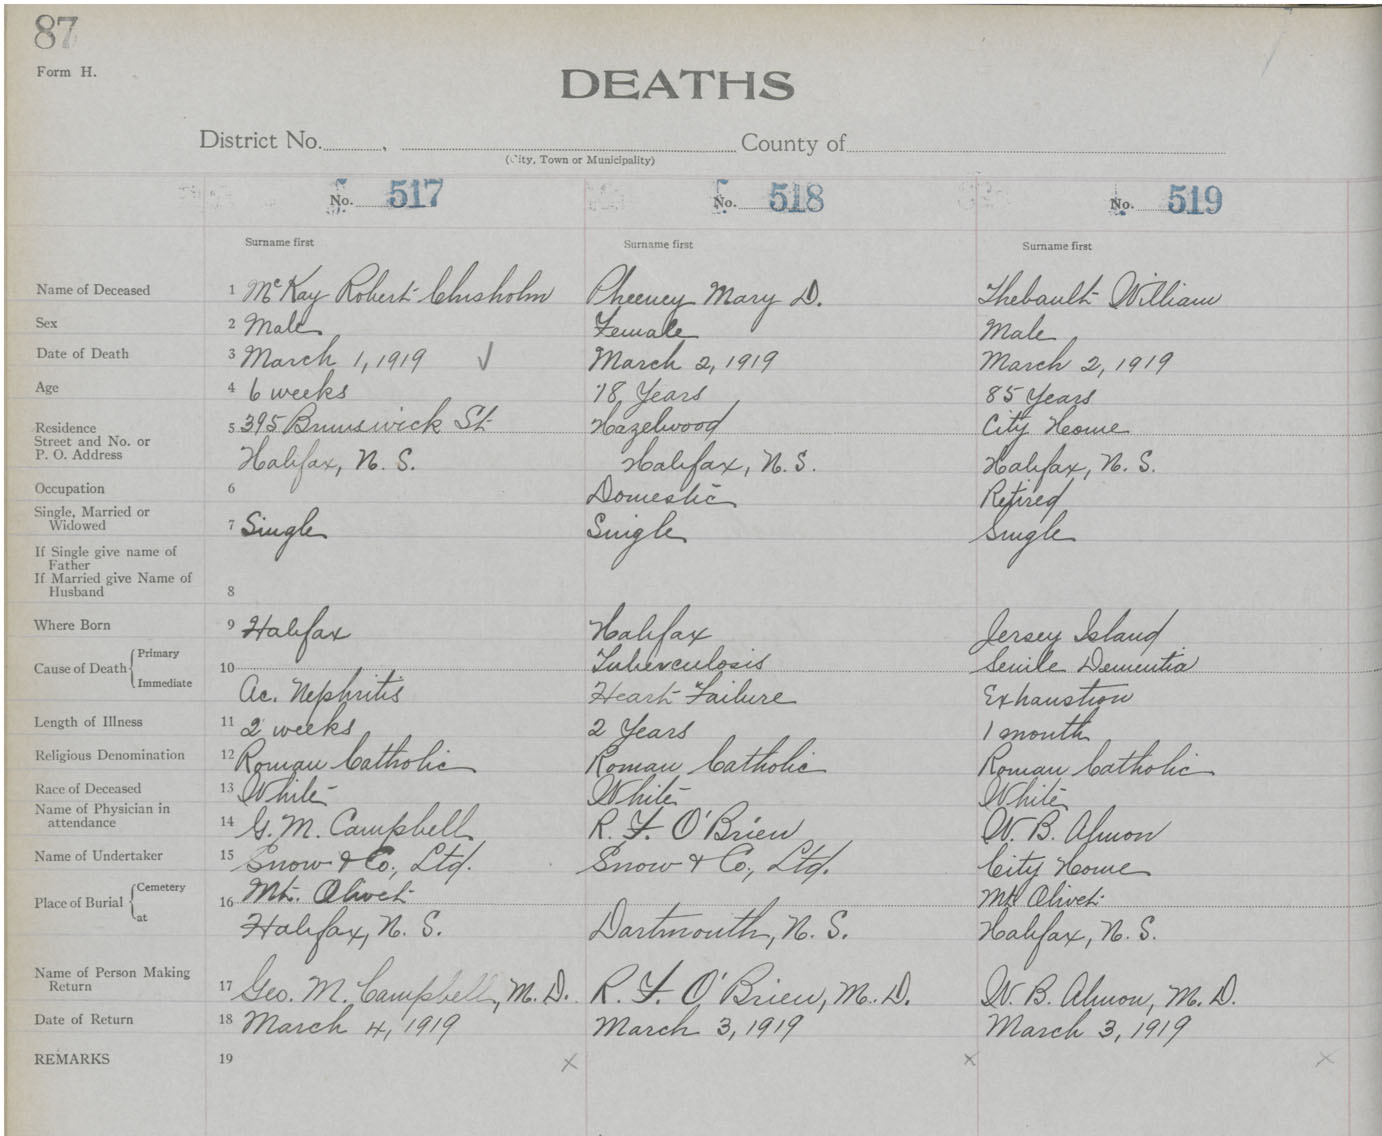 87
Form H.
DEATHS
District No. , County of
(City, Town or Municipality)
No. 517 No. 518 No. 519
Surname first Surname first Surname first
Name of Deceased 1 McKay Robert Chisholm Pheeney Mary D. Thebault William
Sex 2 Male Female Male
Date of Death 3 March 1, 1919 ✓ March 2, 1919 March 2, 1919
Age 4 6 weeks 18 Years 85 Years
Residence 5 395 Brunswick St Hazelwood City Home
Street and No. or
P. O. Address Halifax, N. S. Halifax, N. S. Halifax, N. S.
Occupation 6 Domestic Retired
Single, Married or
Widowed 7 Single Single Single
If Single give name of
Father
If Married give Name of
Husband 8
Where Born 9 Halifax Halifax Jersey Island
Cause of Death Primary 10 Tuberculosis Senile Dementia
Immediate Ac. Nephritis Heart Failure Exhaustion
Length of Illness 11 2 weeks 2 Years 1 month
Religious Denomination 12 Roman Catholic Roman Catholic Roman Catholic
Race of Deceased 13 White White White
Name of Physician in
attendance 14 G. M. Campbell R. F. O'Brien W. B. Almon
Name of Undertaker 15 Snow & Co., Ltd. Snow & Co., Ltd. City Home
Place of Burial Cemetery 16 Mt. Olivet Mt Olivet
at Halifax, N. S. Dartmouth, N. S. Halifax, N. S.
Name of Person Making
Return 17 Geo. M. Campbell, M. D. R. F. O'Brien, M. D. W. B. Almon, M. D.
Date of Return 18 March 4, 1919 March 3, 1919 March 3, 1919
REMARKS 19 x x x